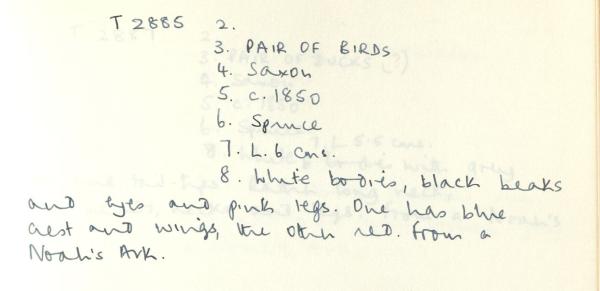 T 2885 2.
3. PAIR OF BIRDS
4. Saxon
5. c. 1850
6. Spruce
7. L. 6 cms.
8. White bodies, black beaks
and eyes and pink legs. One has blue
crest and wings, the other red. From a
Noah's Ark.